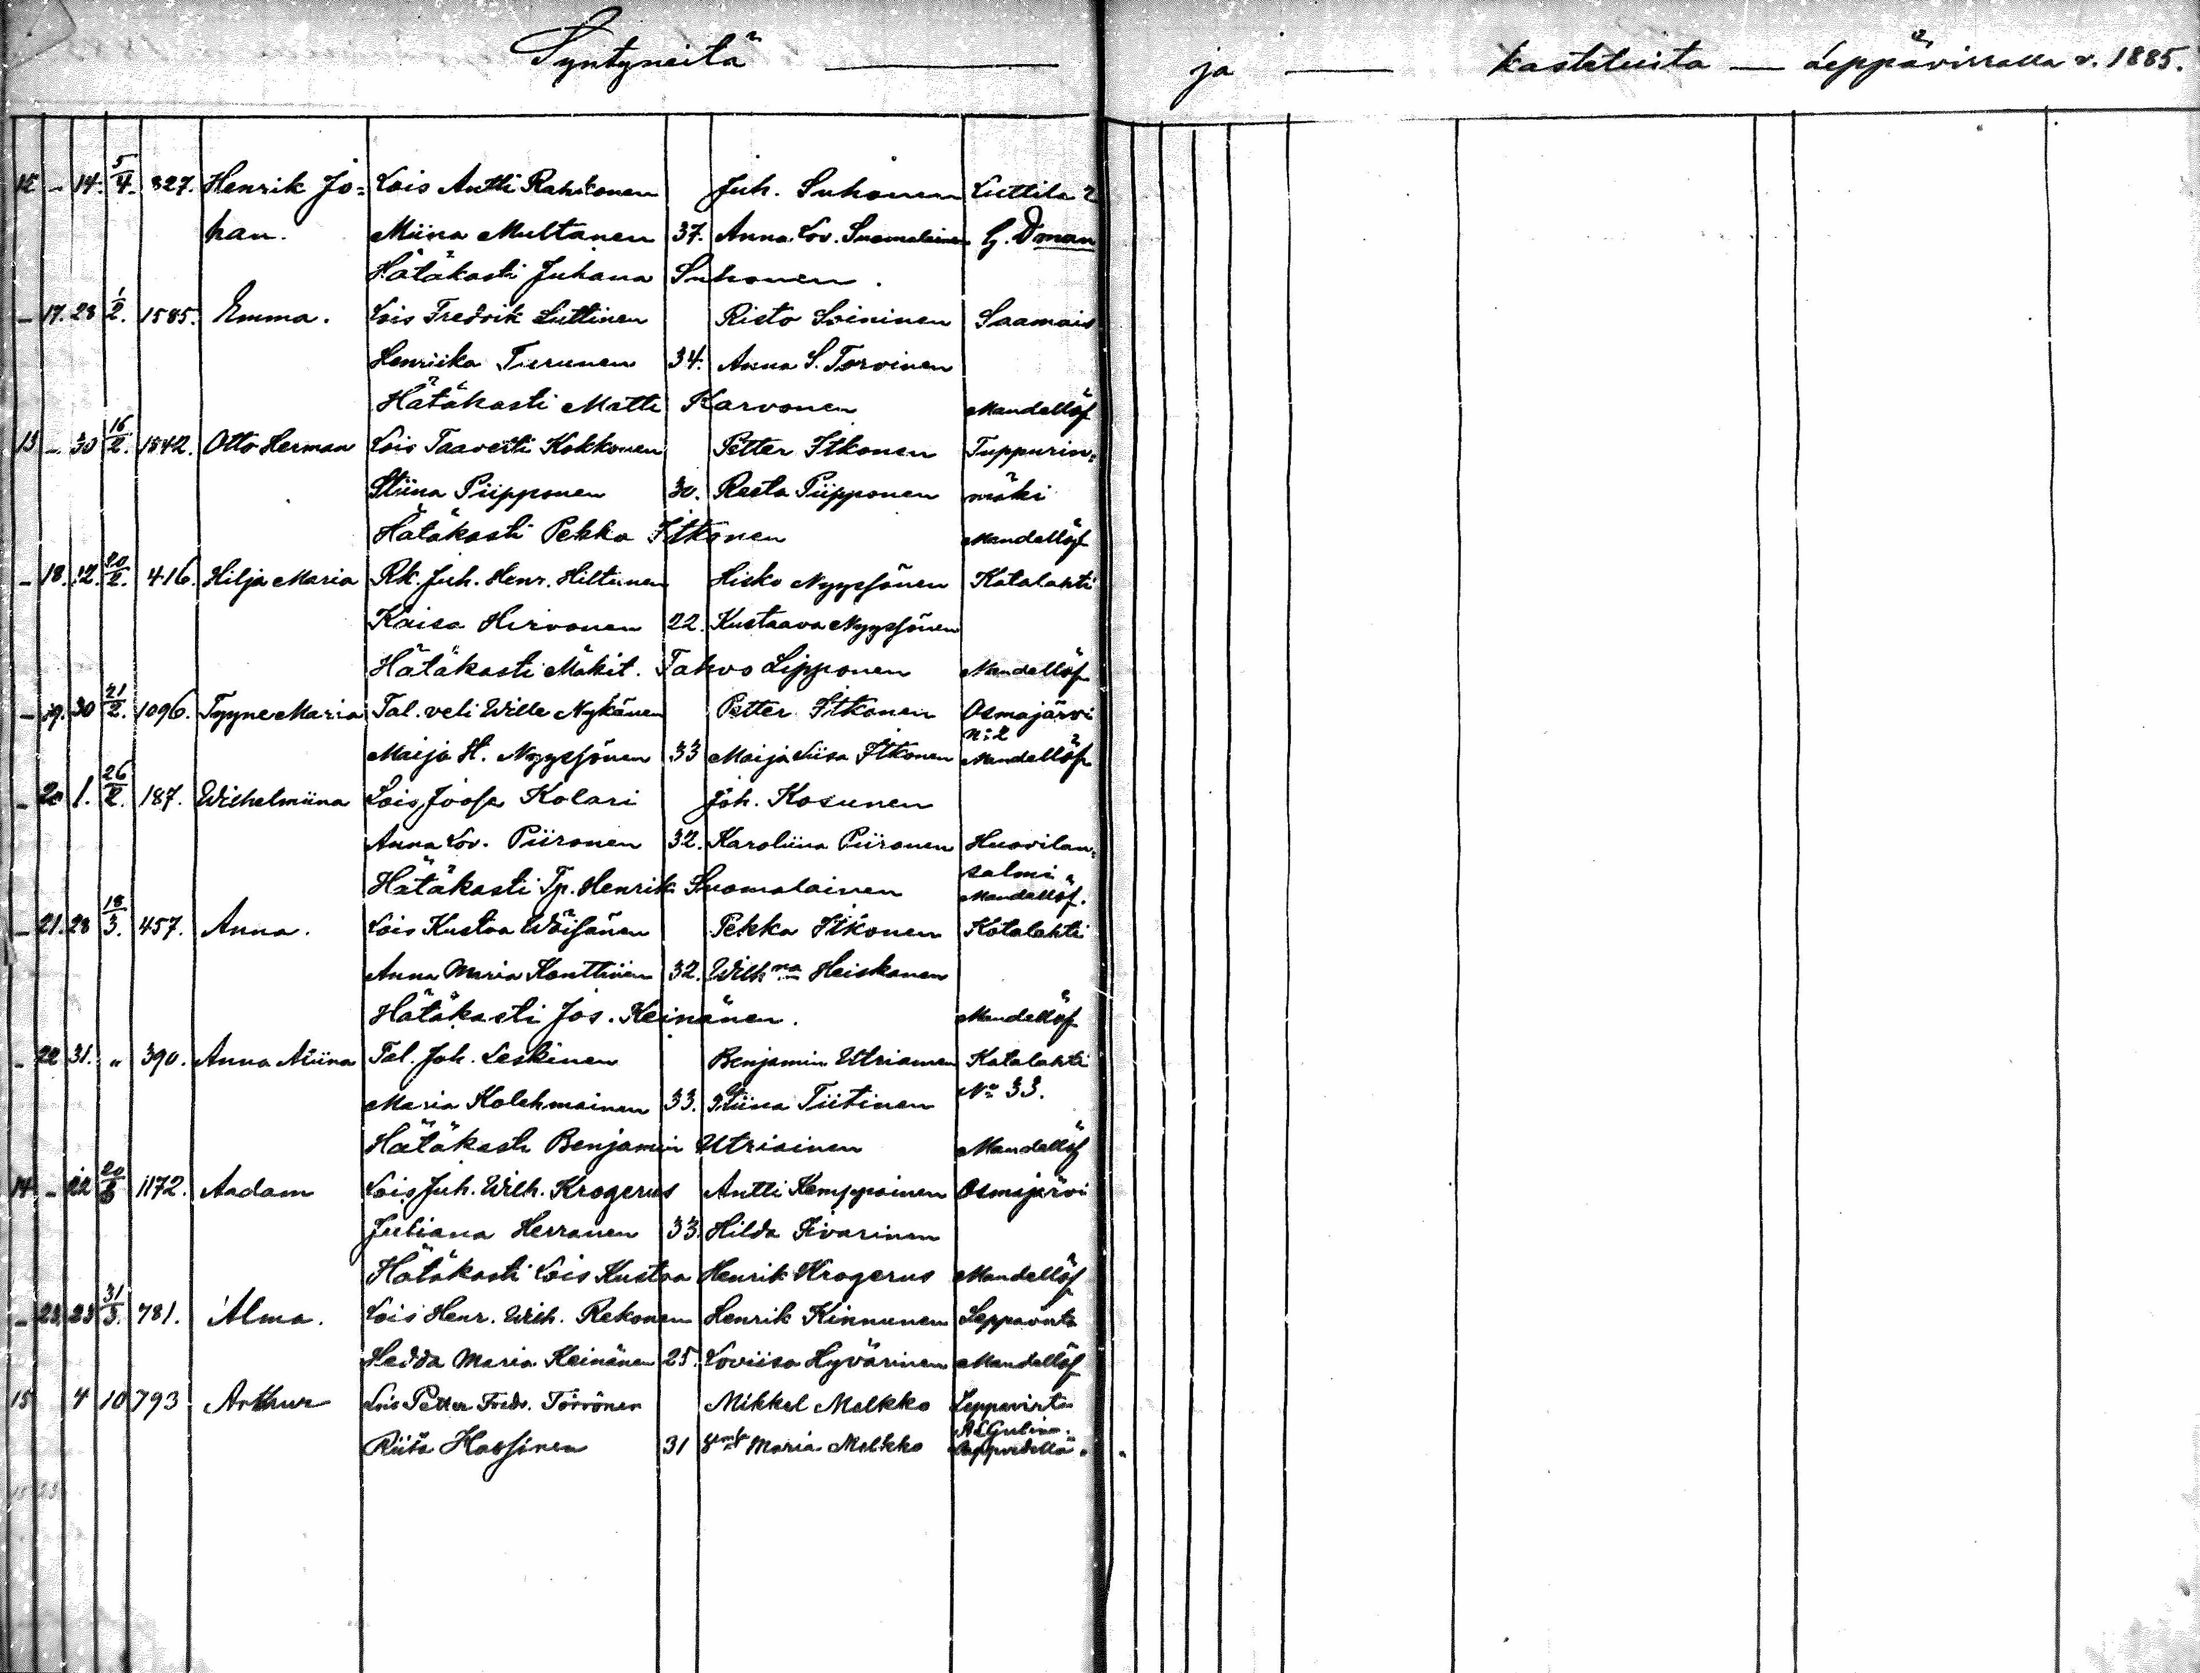 Syntyneitä — ja — kastetuista — Leppävirralla v. 1885.
12 - 14. 5/4. 827. Henrik Jo= Lois Antti Rahikonen Juh. Suhonen Luttila 2
han. Miina Multanen 37. Anna Lov. Suomalainen G. Dman
Hätäkasti Juhana Suhonen.
- 17. 28 1/2. 1585. Emma. Lois Fredrik Luttinen Risto Soininen Saamais
Henriika Turunen 34. Anna S. Torvinen
Hätäkasti Matti Karvonen Mandellöf
13 - 30 16/2. 1542. Otto Herman Lois Taavetti Kokkonen Petter Itkonen Tuppurin=
Stiina Piipponen 30. Reeta Piipponen mäki
Hätäkasti Pekka Itkonen Mandellöf
- 18. 12. 20/2. 416. Hilja Maria Rk. Juh. Henr. Hiltunen Hisko Nyyssönen Kotalahti
Kaisa Hirvonen 22. Kustaava Nyyssönen
Hätäkasti Mäkit. Tahvo Lipponen Mandellöf
- 19. 30 21/2. 1096. Tyyne Maria Tal. veli Wille Nykänen Petter Itkonen Osmajärvi
N:2
Maija H. Nyyssönen 33 Maija Liisa Itkonen Mandellöf
- 20 1. 26/2. 187. Wilhelmiina Lois Joosef Kolari Joh. Kosunen
Anna Lov. Piironen 32. Karoliina Piironen Huovilan=
salmi
Hätäkasti Tp. Henrik Suomalainen Mandellöf.
- 21. 28 18/3. 457. Anna. Lois Kustaa Wäisänen Pekka Itkonen Kotalahti
Anna Maria Konttinen 32. Wilh:na Heiskanen
Hätäkasti Jos. Keinänen. Mandellöf
- 22 31. " 390. Anna Miina Tal. Joh. Leskinen Benjamin Utriainen Kotalahti
Maria Kolehmainen 33. Stiina Tiitinen No 33.
Hätäkasti Benjamin Utriainen Mandellöf
14 - 22 20/3 1172. Aadam Lois Juh. Wilh. Krogerus Antti Kemppainen Osmajärvi
Juliana Herranen 33. Hilda Iivarinen
Hätäkasti Lois Kustaa Henrik Krogerus Mandellöf
- 23. 23 31/3. 781. Alma. Lois Henr. Wilh. Rekonen Henrik Kinnunen Leppävirta
Hedda Maria Keinänen 25. Loviisa Hyvärinen Mandellöf
15 4 10 793 Arthur Lois Petter Fredr. Törrönen Mikkel Melkko Leppävirta
Riita Hassinen 31 Maria Melkko